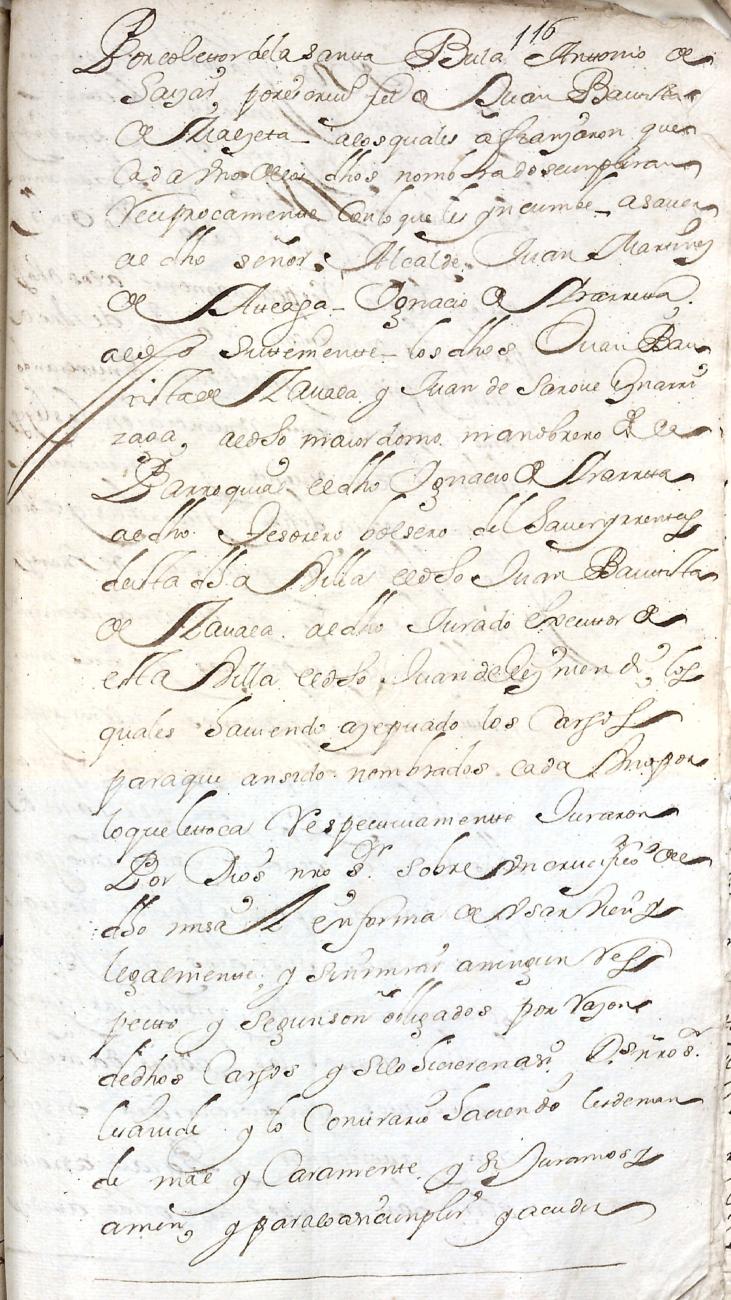 116
Por coletor de la santa Bula Antonio de
Sayas, por   Juan Bautista
de   a los quales afianzaron que
cada uno de los dhos nombrados cumpliran
reciprocamente con lo que les yncumbe a saver
al dho señor Alcalde Juan Martines
de Arteaga Ygnacio de Ibarreta
al dho  los dhos Juan Bau
tista de Zavala y Juan de Sarove Ynarri
zaga, al dho maiordomo manobrero de la
Parroquia el dho Ygnacio de Ibarreta
al dho Tesorero bolsero del haver y rentas
desta dha Villa el dho Juan Bautista
de Zavala al dho Jurado executor de
esta Villa el dho Juan de  los
quales haviendo azeptado los Cargos
para que an sido nombrados cada uno por
lo que le toca respectivamente Juraron
Por Dios nro Sr sobre un crucifico del
dho misal en forma de usar vien y
legalmente y sin mirar a ningun res
pecto y segun son obligados por razon
de dhos Cargos y si lo hicieren asi Ds nro Sr
les aiude y lo Contrario haciendo les deman
de mal y Caramente y Si Juramos y
amen, y para lo asi cunplir y acudir